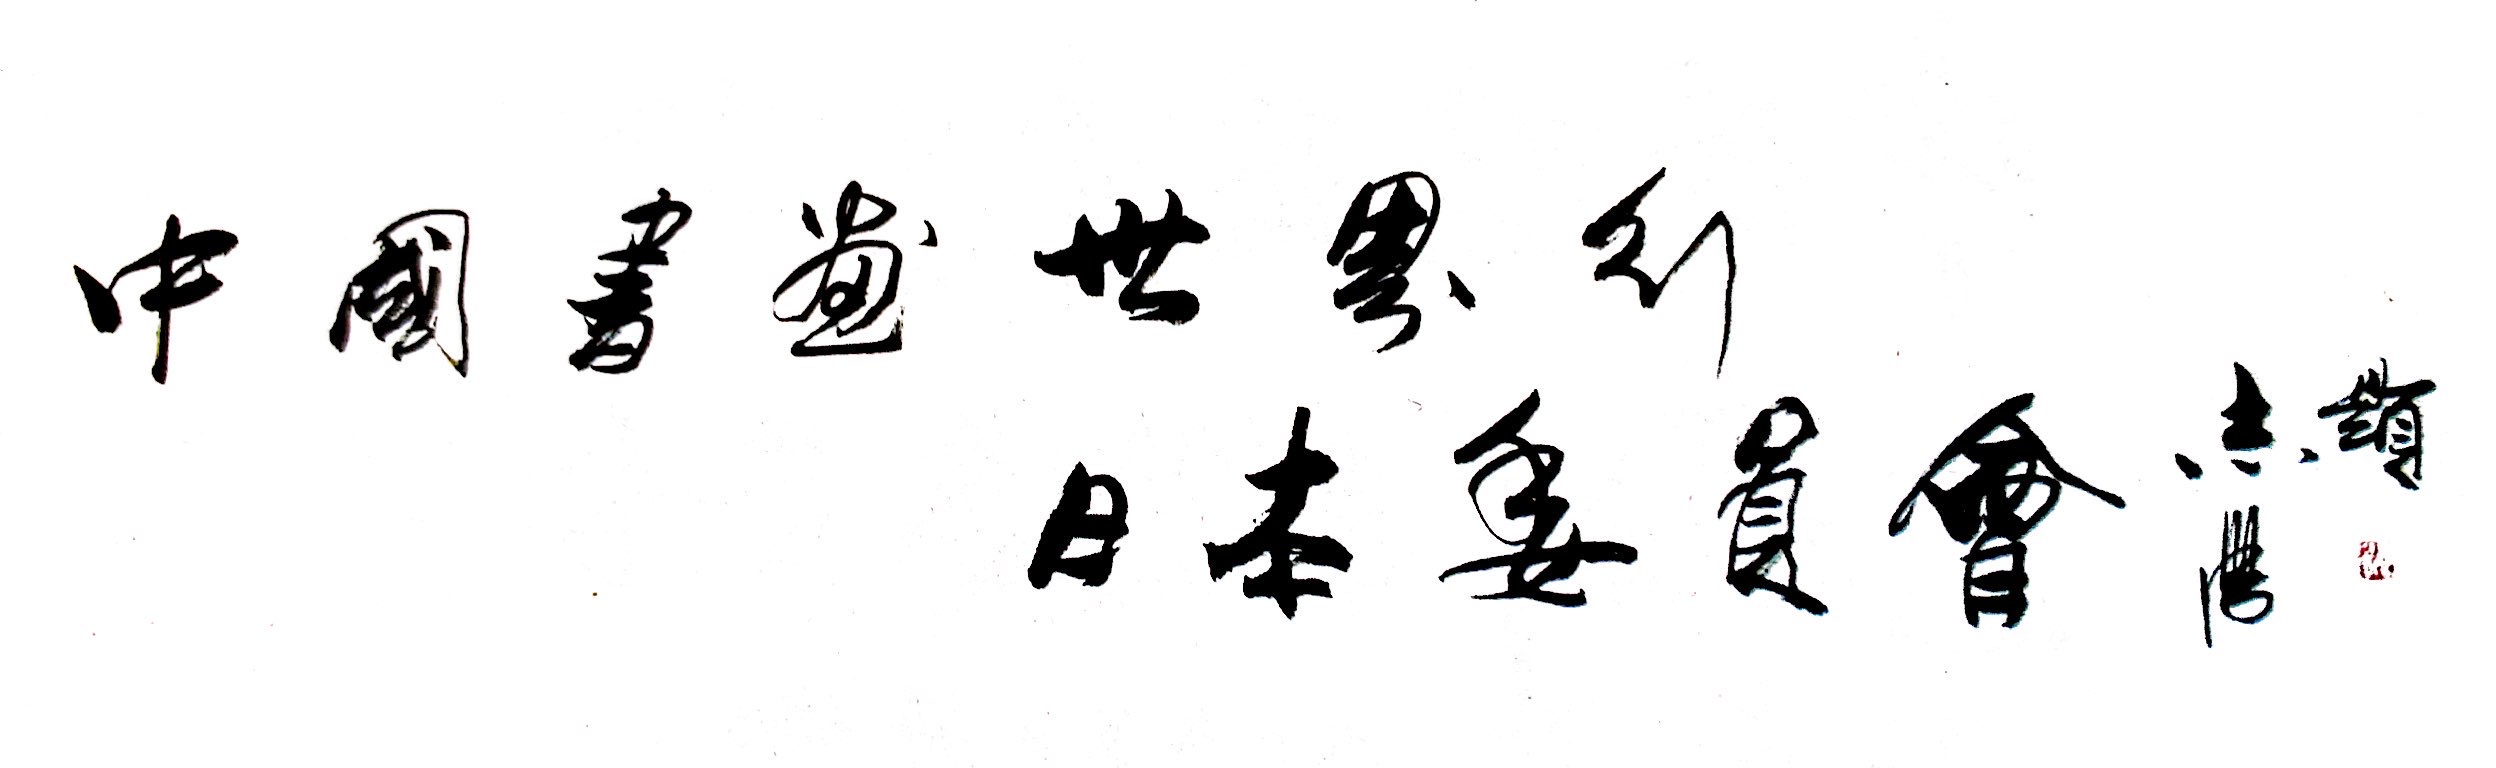 中國書畫世界行
日本委員會